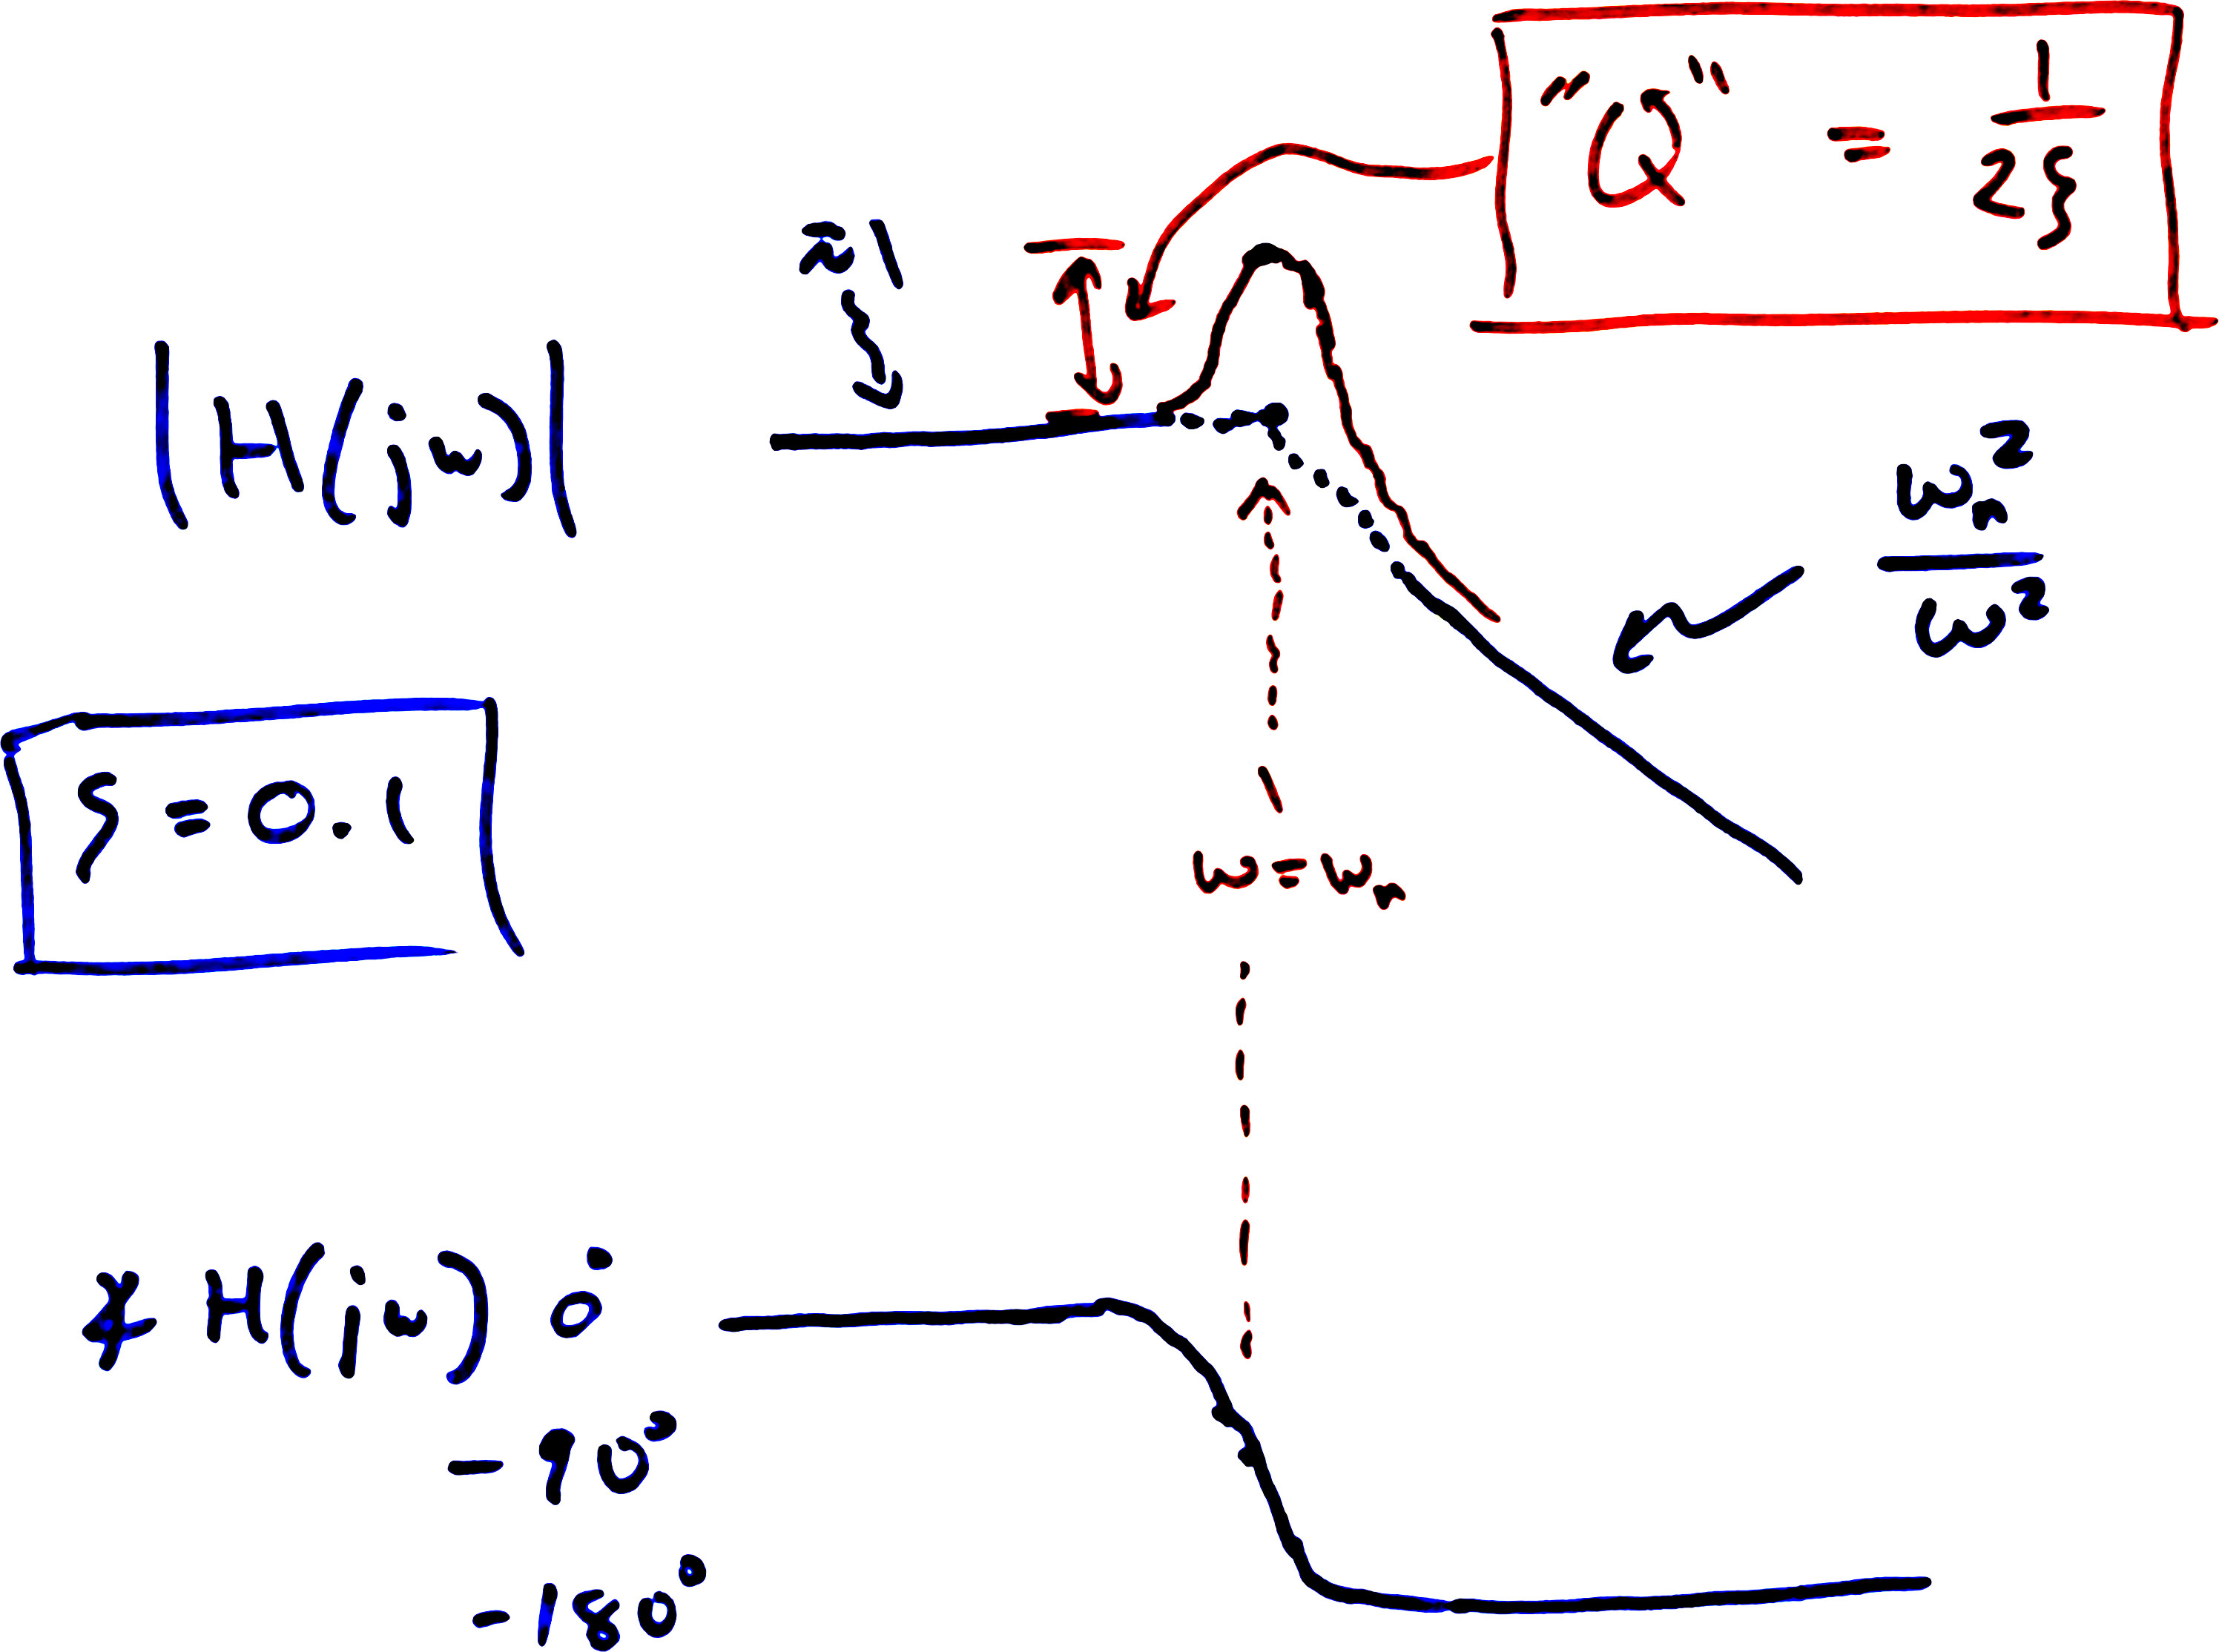 "Q" = 1/2ξ
≈1
|H(jω)|
ωn²/ω²
ζ = 0.1
ω = ωn
∡ H(jω) 0°
-90°
-180°